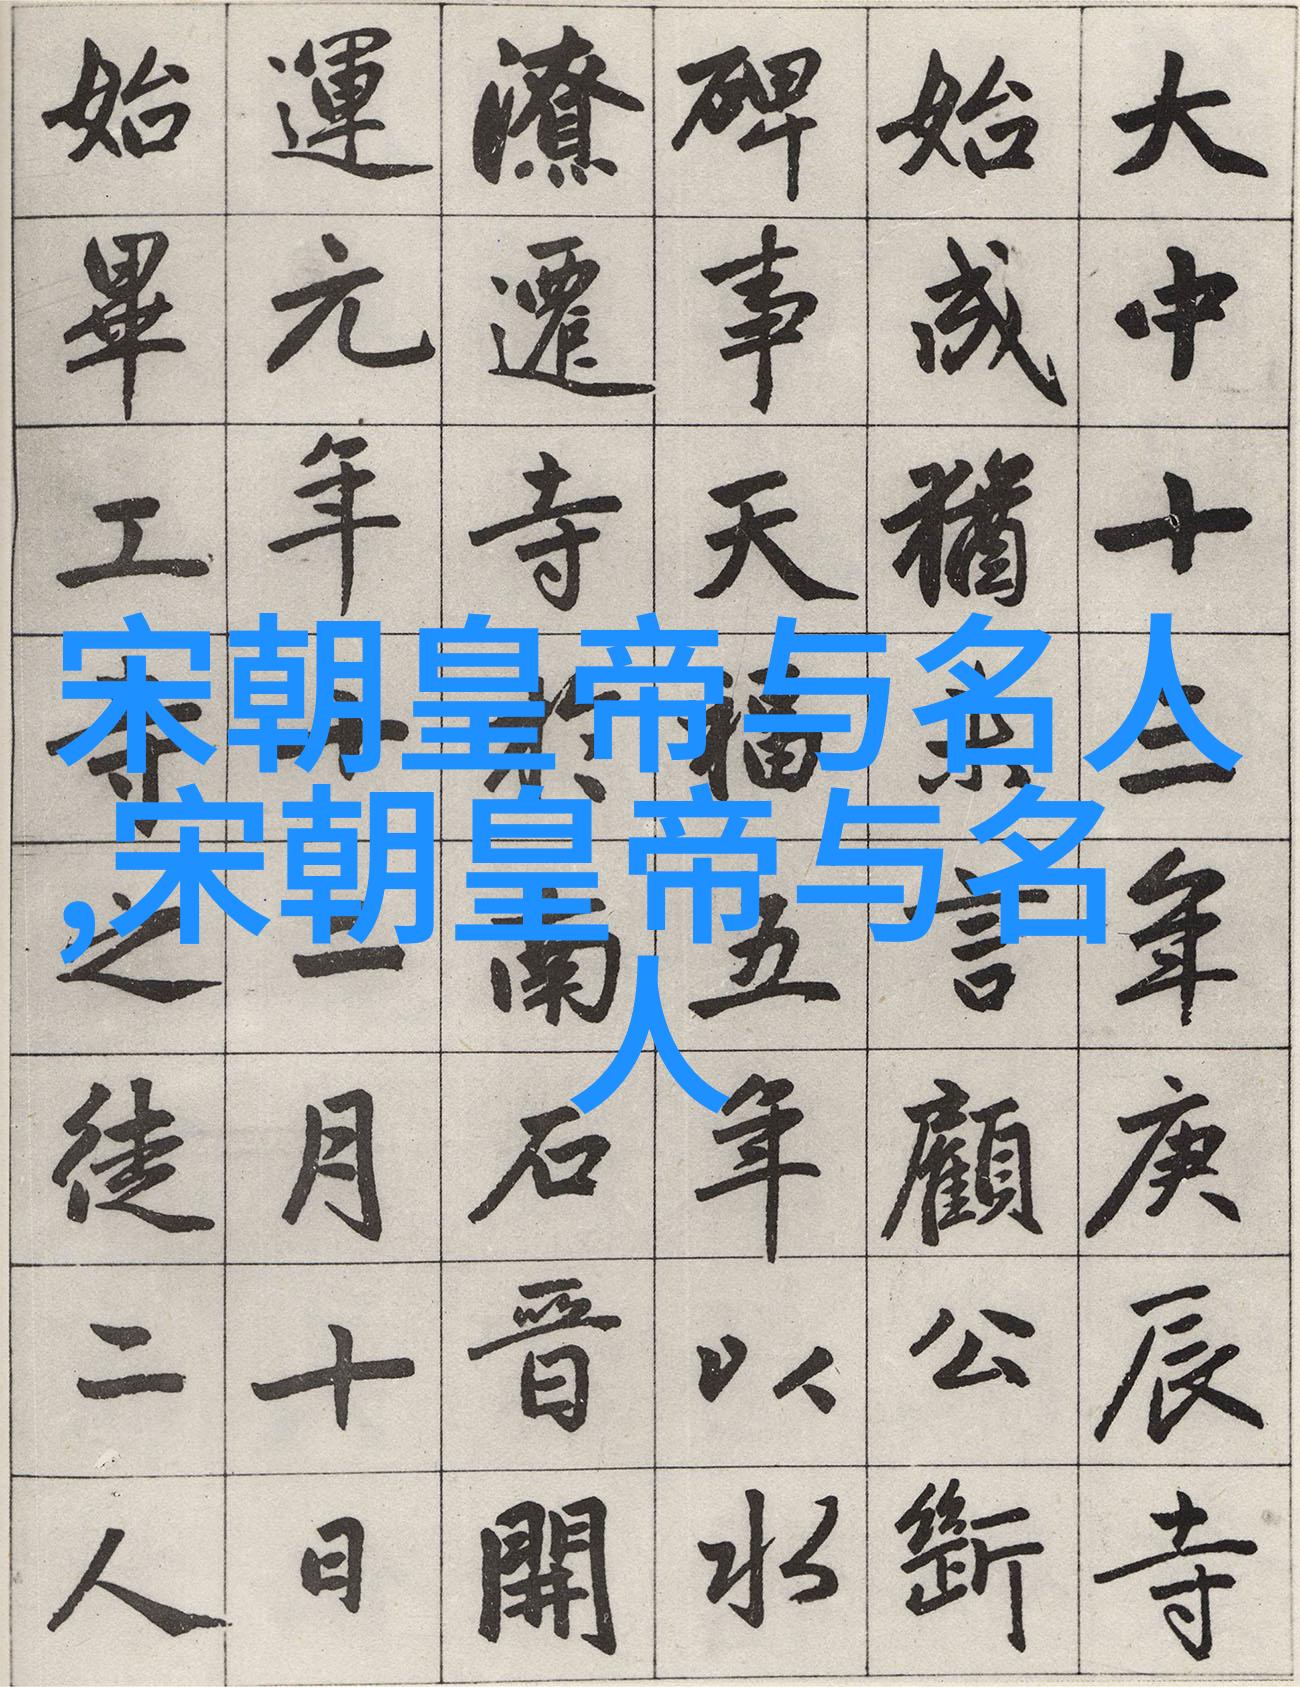 大中十三年庚辰寺
始成猶未言顧公斲
碑事天福五年以水
潦遷寺於南石晉開
運元年十二月十日
始畢工寺之徒二人
宋朝皇帝与名人
,宋朝皇帝与名
人